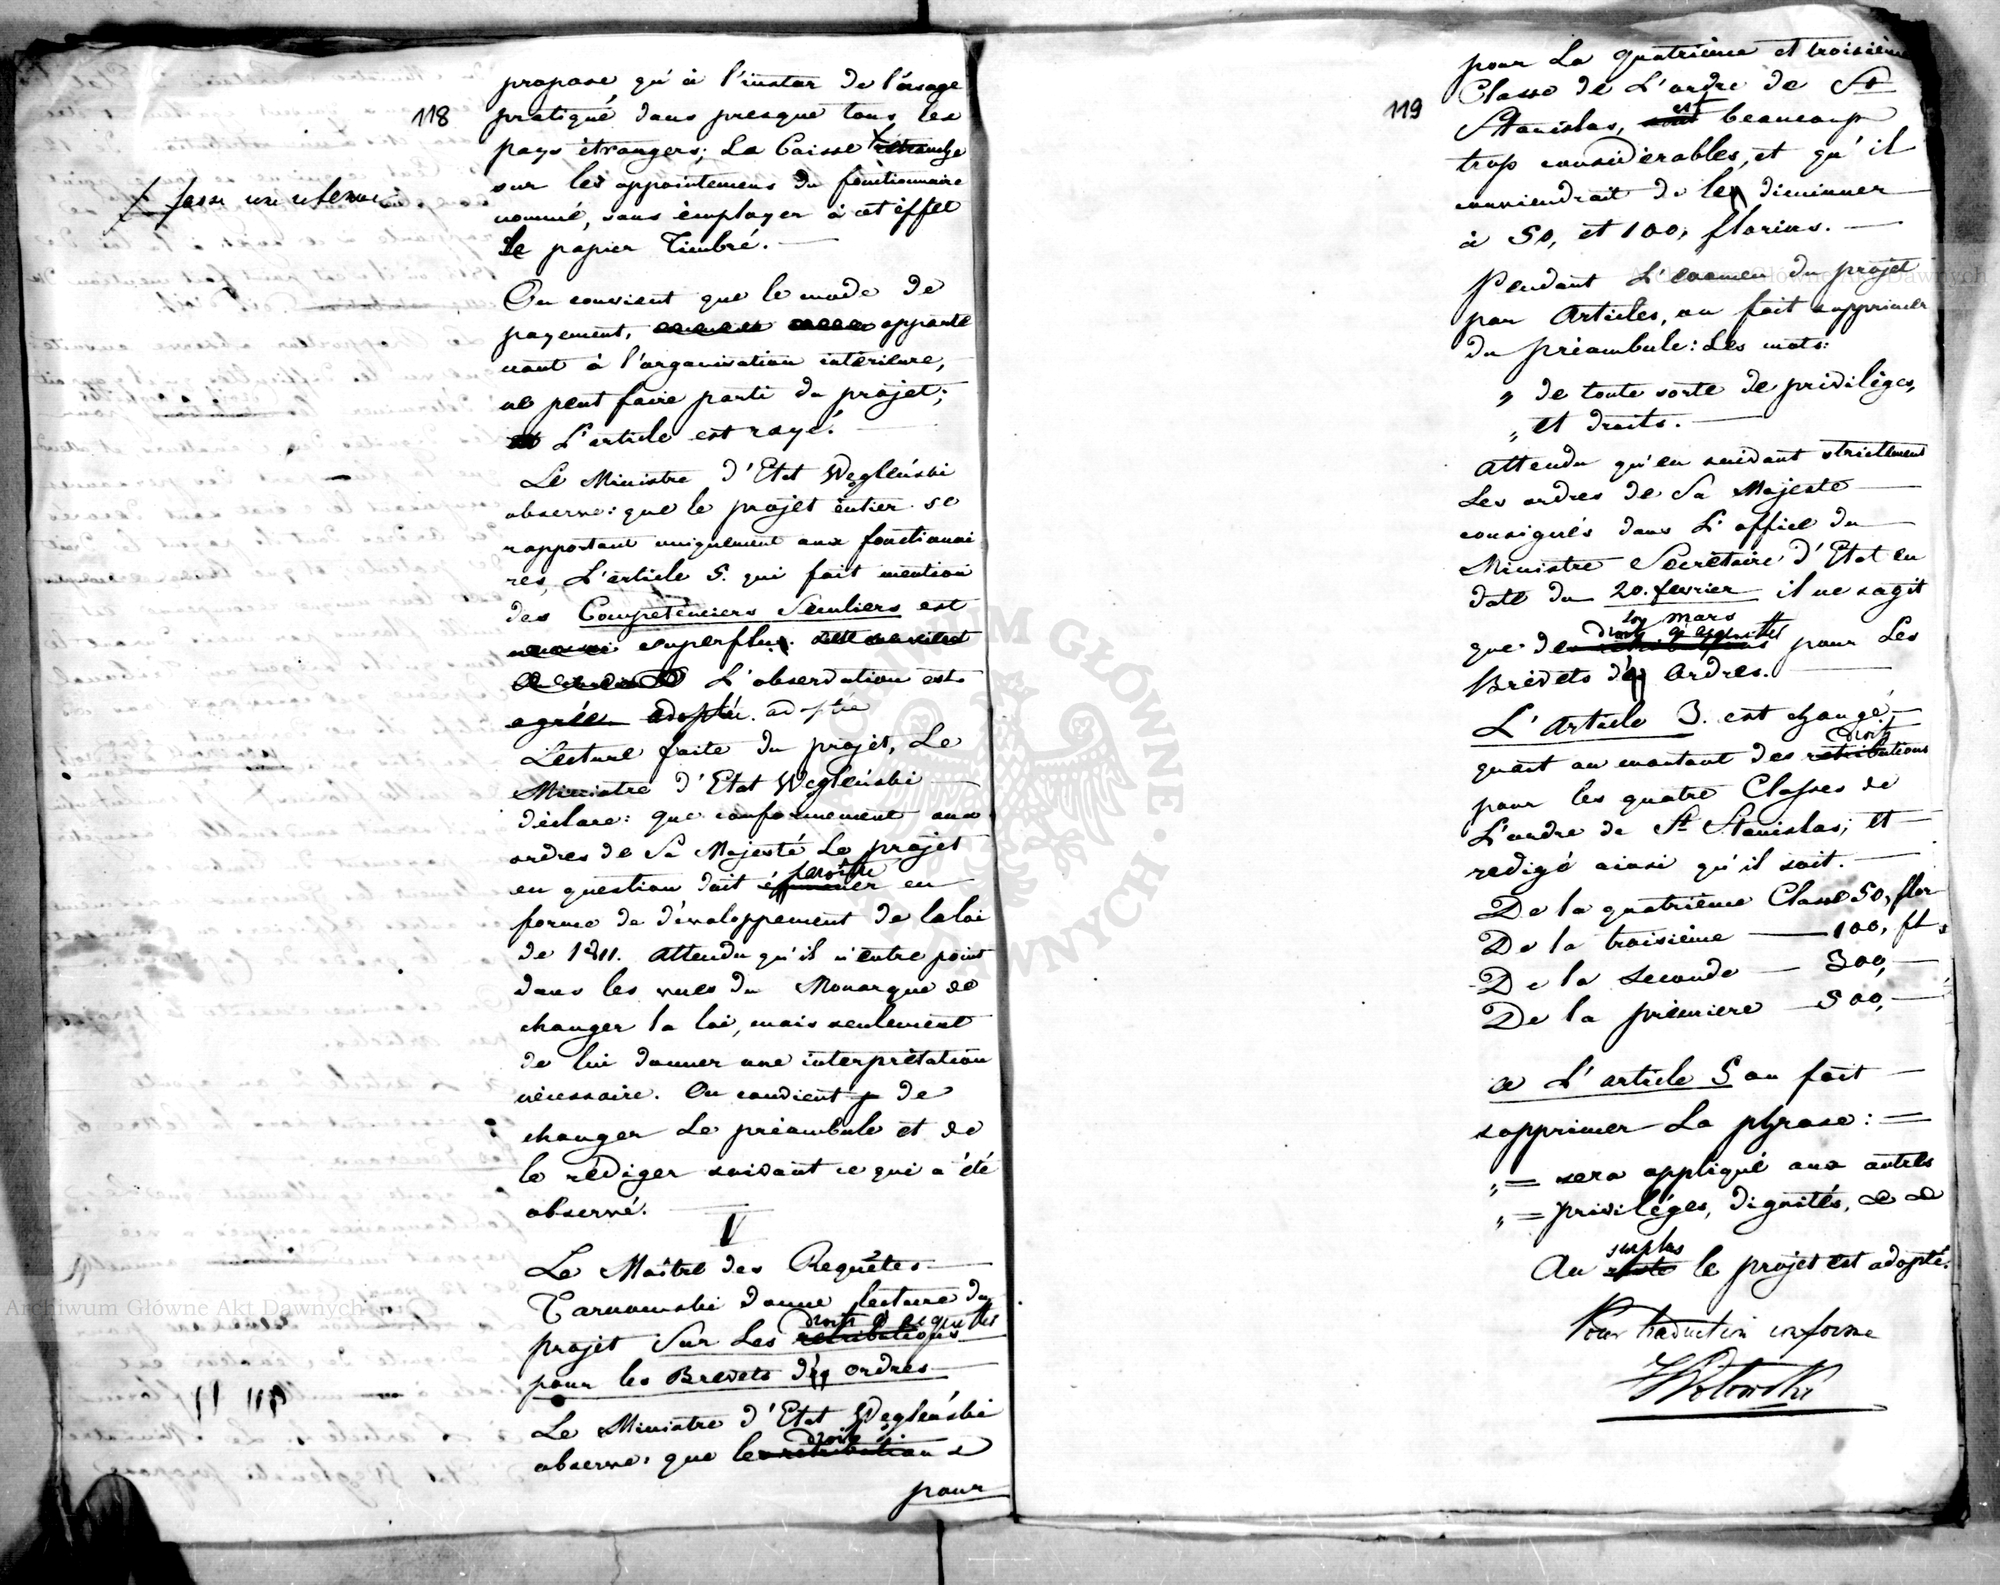 118
propose, qu'à l'instar de l'usage
pratiqué dans presque tous les
pays étrangers; La Caisse retranche
fasse une retenue
sur les appointemens du fonctionnaire
nommé, sans employer à cet éffet
le papier Timbré. —
On convient que le mode de
payement, apparte
nant à l'organisation intérieure,
ne peut faire parti du projet;
L'article est rayé. —
Le Ministre d'Etat Węgleński
observe: que le projet éntier se
rapportant uniquement aux fonctionai
res, L'article 5. qui fait mention
des Compétenciers Séculiers est
superflu.
L'observation est
agrée adoptée. adoptée
Lecture faite du projet, Le
Ministre d'Etat Węgleński
déclare: que conformement aux
ordres de Sa Majesté Le projet
paroître
en question doit émaner en
forme de développement de la loi
de 1811. Attendu qu'il n'entre point
dans les vues du Monarque de
changer la loi, mais seulement
de lui donner une interprétation
nécessaire. On convient de
changer Le préambule et de
le rédiger suivant ce qui a été
observé. —
V
Le Maître des Requêtes
Tarnowski donne lecture du
droits d'expéditions
projet Sur Les retributions
pour les Brevets des ordres
Le Ministre d'Etat Węgleński
droits
observe, que les retributions
pour
119
pour La quatrième et troisième
Classe de L'ordre de St
est
Stanislas, sont beaucoup
trop considérables, et qu'il
conviendrait de les diminuer
à 50, et 100, florins. —
Pendant L'examen du projet
par Articles, on fait supprimer
du préambule: Les mots:
„ de toute sorte de privilèges,
„ et droits. —
Attendu qu'en suivant strictement
Les ordres de Sa Majesté
consignés dans L'office du
Ministre Secrétaire d'Etat en
date du 20. fevrier il ne sagit
mars
que des retributions pour Les
Brévets des Ordres. —
L'Article 3. est changé
droits
quant au montant des retributions
pour les quatre Classes de
L'ordre de St Stanislas; et
redigé ainsi qu'il suit. —
De la quatrième Classe 50, flor
De la troisième — 100, fl
De la seconde — 300, —
De la prémiere — 500, —
a L'article 5 on fait
supprimer La phrase: =
„ = sera appliqué aux autres
„ = privilèges, dignités, &c &c
surplus
Au reste le projet est adopté.
Pour traduction conforme
Archiwum Główne Akt Dawnych
Archiwum Główne Akt Dawnych
ARCHIWUM GŁÓWNE AKT DAWNYCH